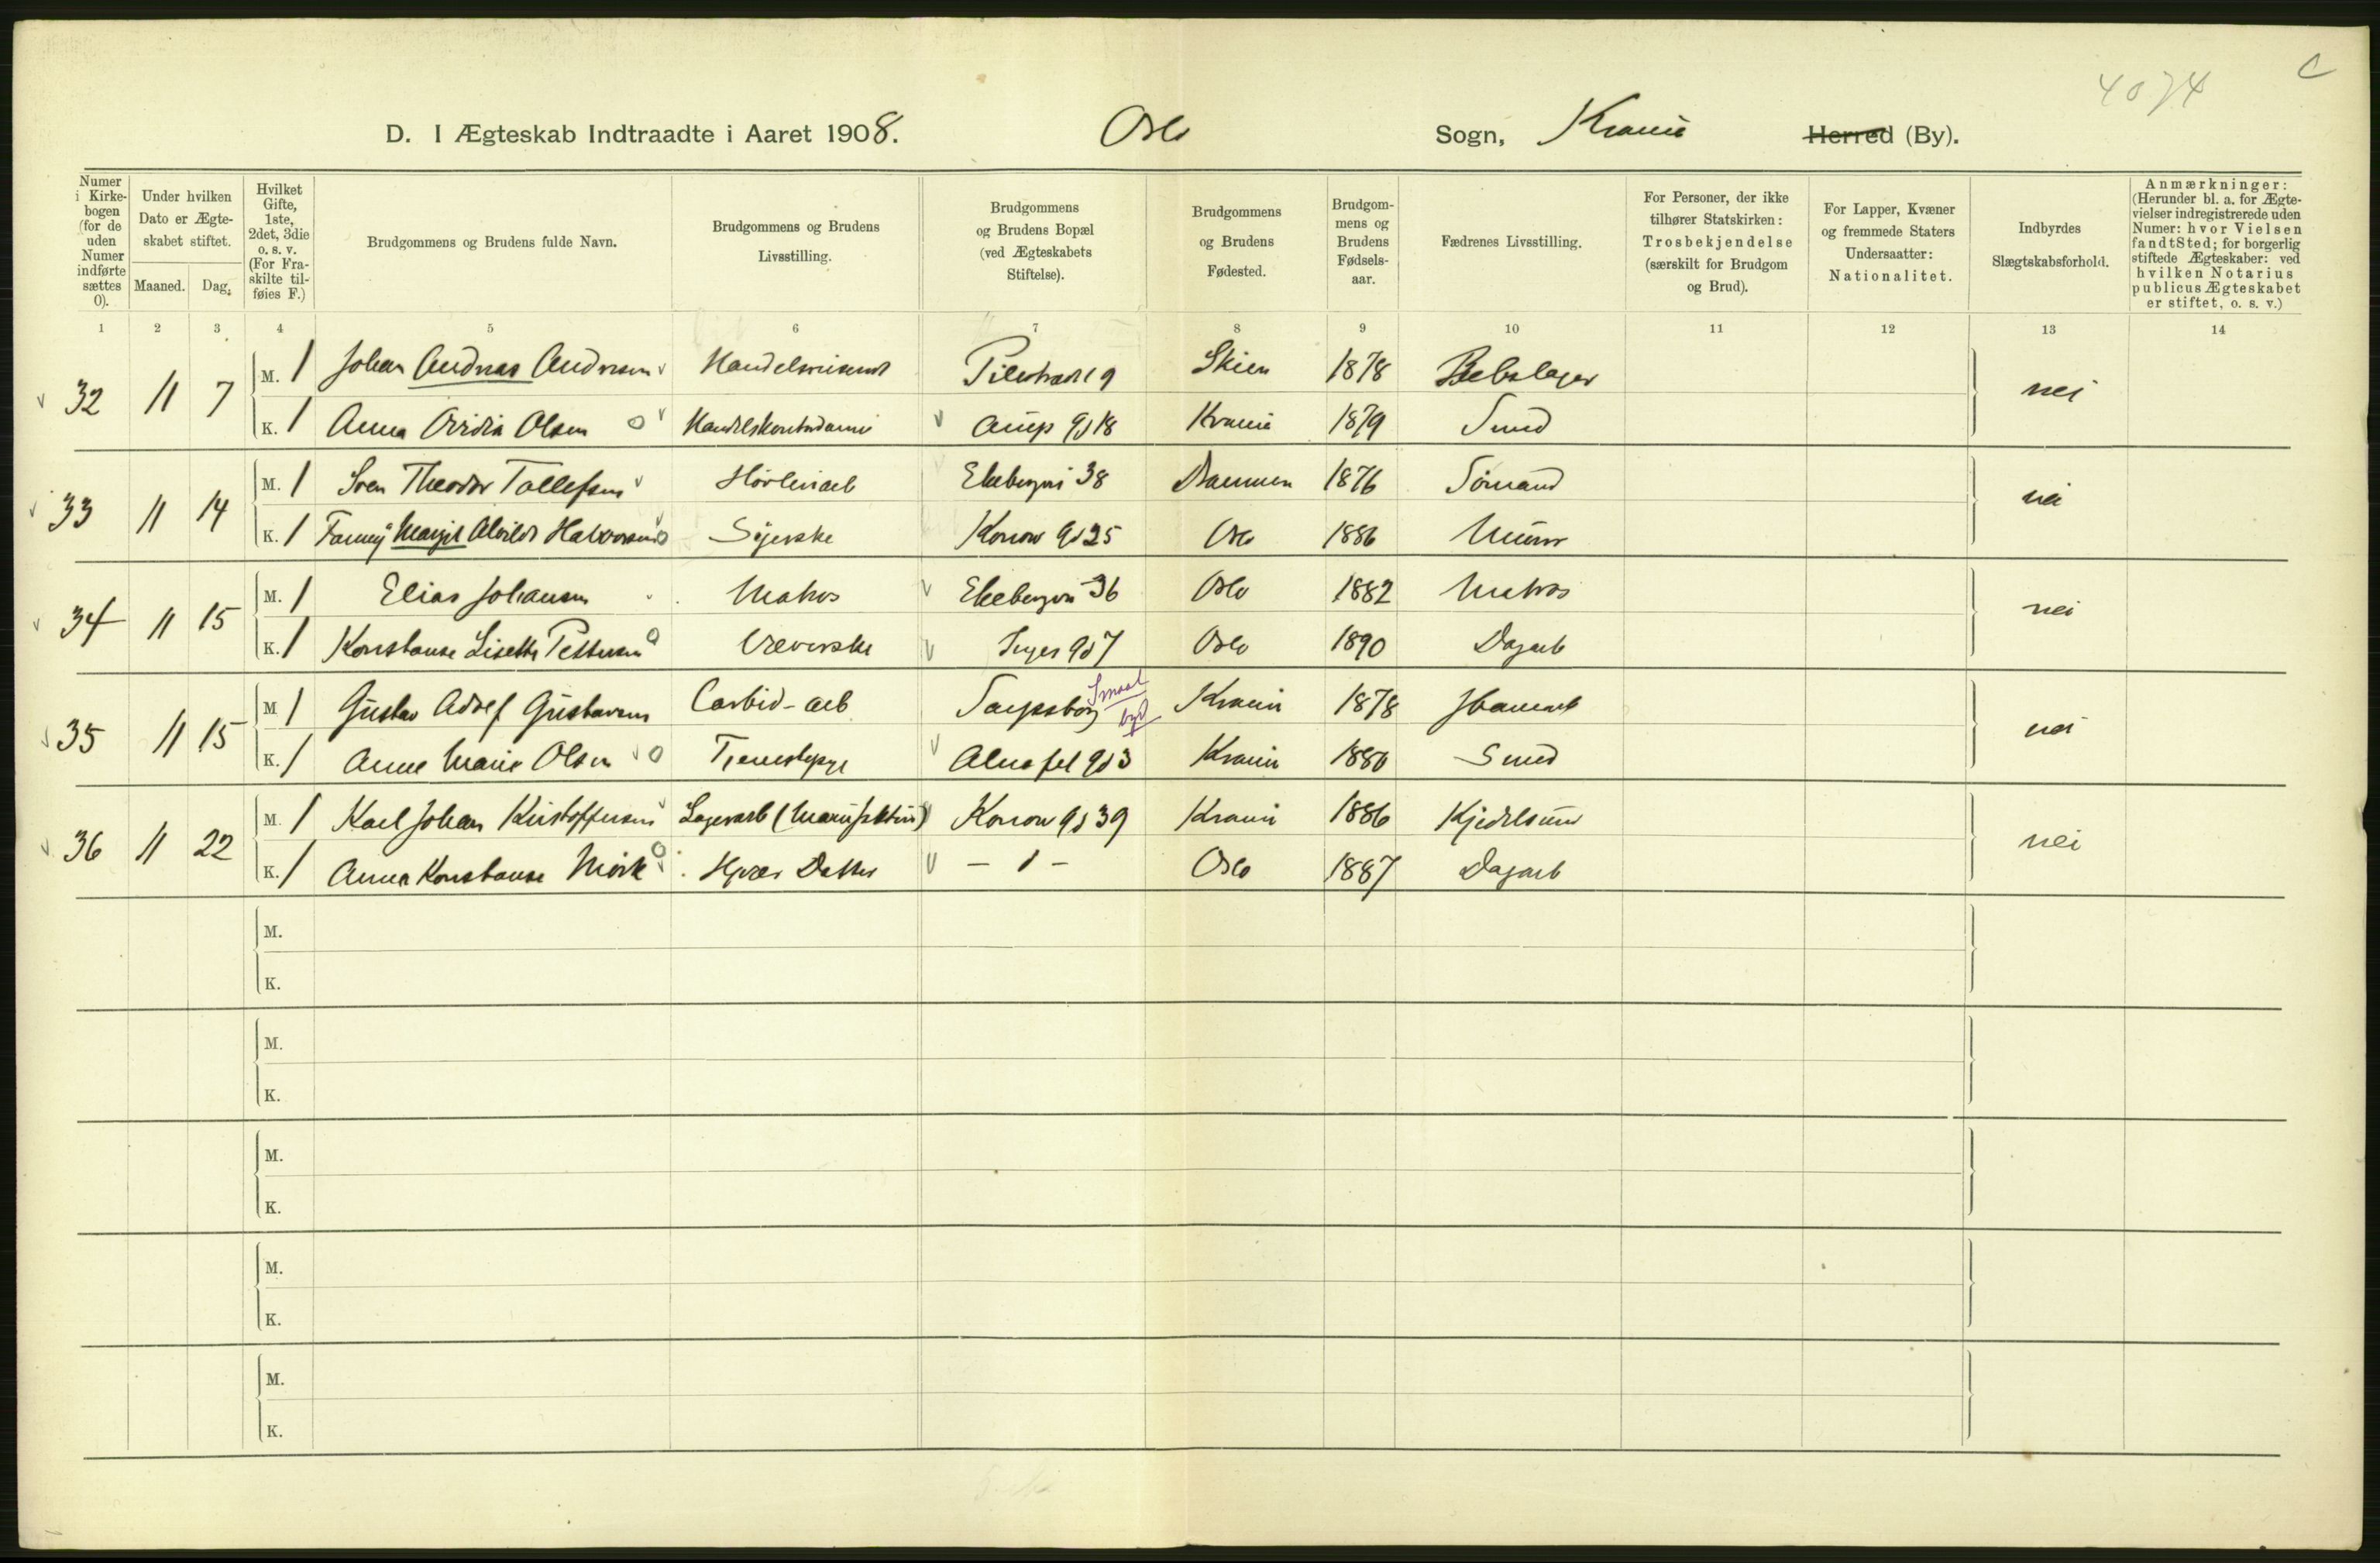 4074
c
D. I Ægteskab Indtraadte i Aaret 1908. Oslo Sogn, Krania Herred (By).
Numer i Kirkebogen (for de uden Numer indførte sættes 0).
Under hvilken Dato er Ægteskabet stiftet.
Maaned. Dag.
Hvilket Gifte, 1ste, 2det, 3die o. s. v. (For Fraskilte tilføies F.)
Brudgommens og Brudens fulde Navn.
Brudgommens og Brudens Livsstilling.
Brudgommens og Brudens Bopæl (ved Ægteskabets Stiftelse).
Brudgommens og Brudens Fødested.
Brudgommens og Brudens Fødselsaar.
Fædrenes Livsstilling.
For Personer, der ikke tilhører Statskirken: Trosbekjendelse (særskilt for Brudgom og Brud).
For Lapper, Kvæner og fremmede Staters Undersaatter: Nationalitet.
Indbyrdes Slægtskabsforhold.
Anmærkninger: (Herunder bl. a. for Ægtevielser indregistrerede uden Numer: hvor Vielsen fandt Sted; for borgerlig stiftede Ægteskaber: ved hvilken Notarius publicus Ægteskabet er stiftet, o. s. v.)
1 2 3 4 5 6 7 8 9 10 11 12 13 14
32 11 7 M. 1 Johan Andreas Andresen Handelsreisende Pilestræde 9 Skien 1878 Rebslager nei
K. 1 Anna Ovidia Olsen Handelskontordame Arups Gd 18 Krania 1879 Smed
33 11 14 M. 1 Sven Theodor Tollefsen Høvleriarb Ekebergvei 38 Drammen 1876 Sømand nei
K. 1 Fanny Margit Alvilde Halvorsen Syerske Konow Gd 25 Oslo 1886 Murer
34 11 15 M. 1 Elias Johansen Matros Ekebergvei 36 Oslo 1882 Matros nei
K. 1 Konstanse Lisette Pettersen Væverske Inges Gd 7 Oslo 1890 Dagarb
35 11 15 M 1 Gustav Adolf Gustavsen Carbid-arb Sarpsborg Krania 1878 nei
K. 1 Anne Marie Olsen Tjenestepige Alnafet Gd 3 Krania 1880 Smed
36 11 22 M. 1 Karl Johan Kristoffersen Lagerarb (Manufaktur) Konow Gd 39 Krania 1886 Kjedelsmed nei
K. 1 Anna Konstanse Mørk Hjem. Datter - " - Oslo 1887 Dagarb
M.
K.
M.
K.
M.
K.
M.
K.
M.
K.